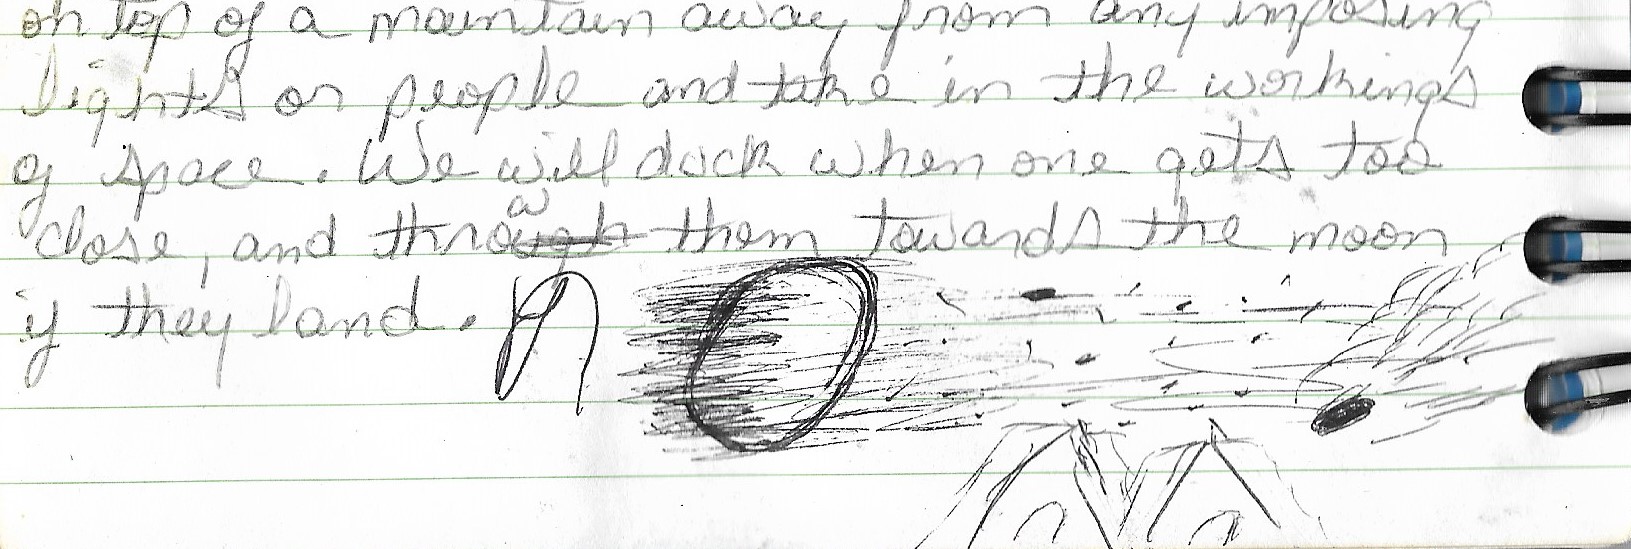 on top of a mountain away from any imposing
lights or people and take in the workings
of space. We will duck when one gets too
close, and throw them towards the moon
if they land.